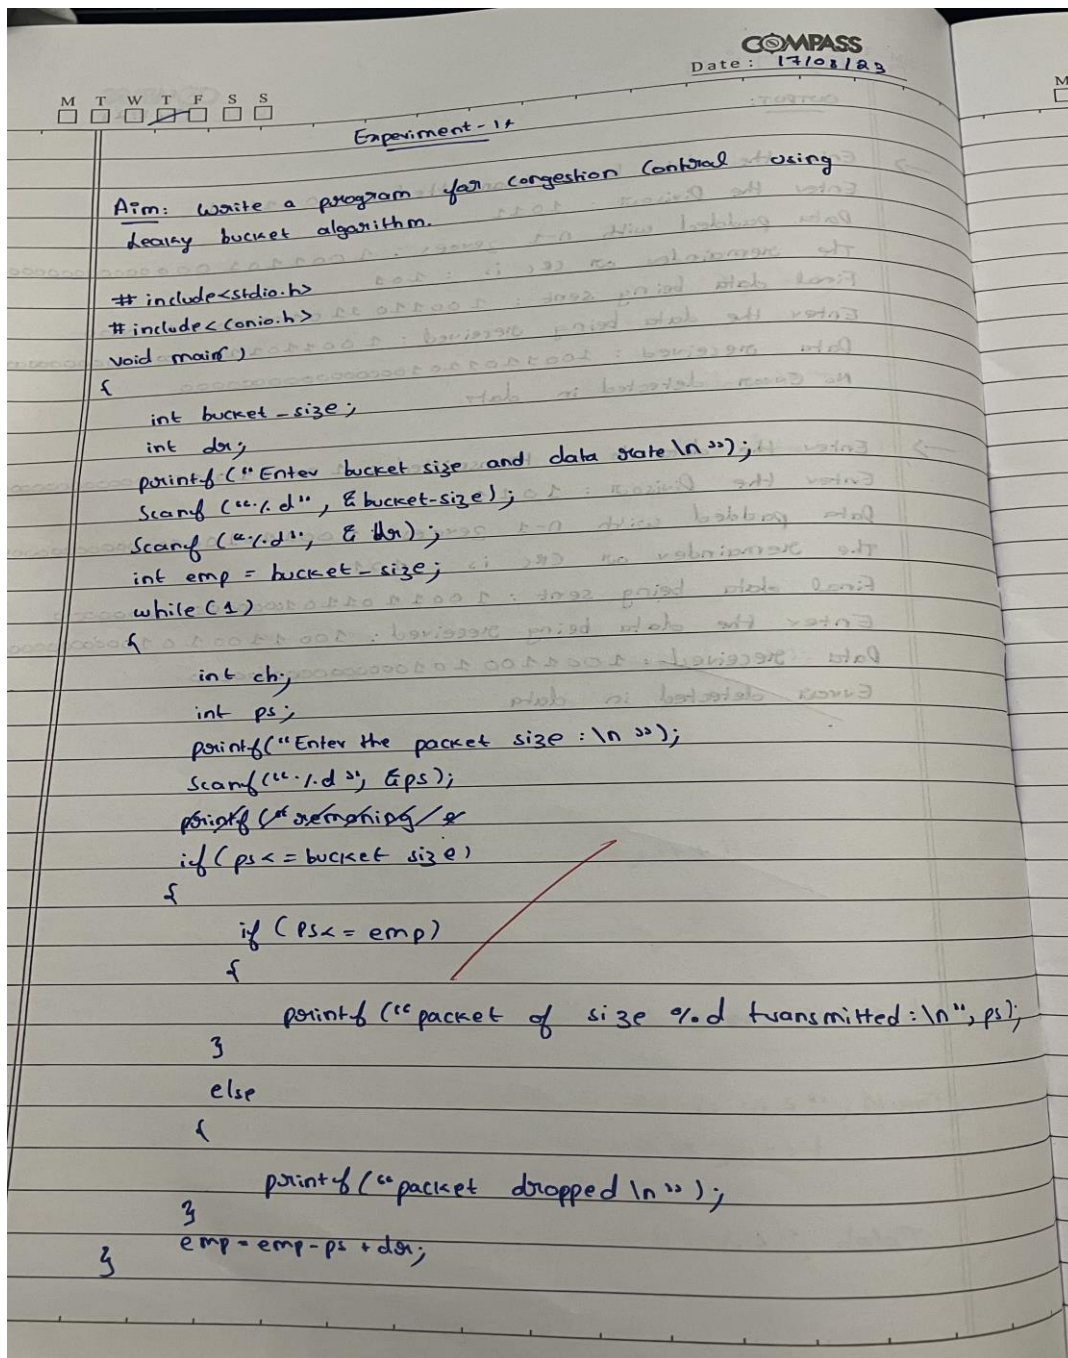 COMPASS
Date: 17/08/23
M T W T F S S
M
Experiment-1
Aim: Write a program for congestion control using
Leaky bucket algorithm.
# include<stdio.h>
# include<conio.h>
void main()
{
int bucket_size;
int dr;
printf("Enter bucket size and data rate\n");
scanf("%d", &bucket-size);
scanf("%d", & dr);
int emp = bucket_size;
while(1)
{
int ch;
int ps;
printf("Enter the packet size :\n");
scanf("%d", &ps);
printf("remaning
if(ps<=bucket size)
{
if (ps<= emp)
{
printf("packet of size %d transmitted:\n", ps);
}
else
{
printf("packet dropped\n");
}
emp=emp-ps+dr;
}